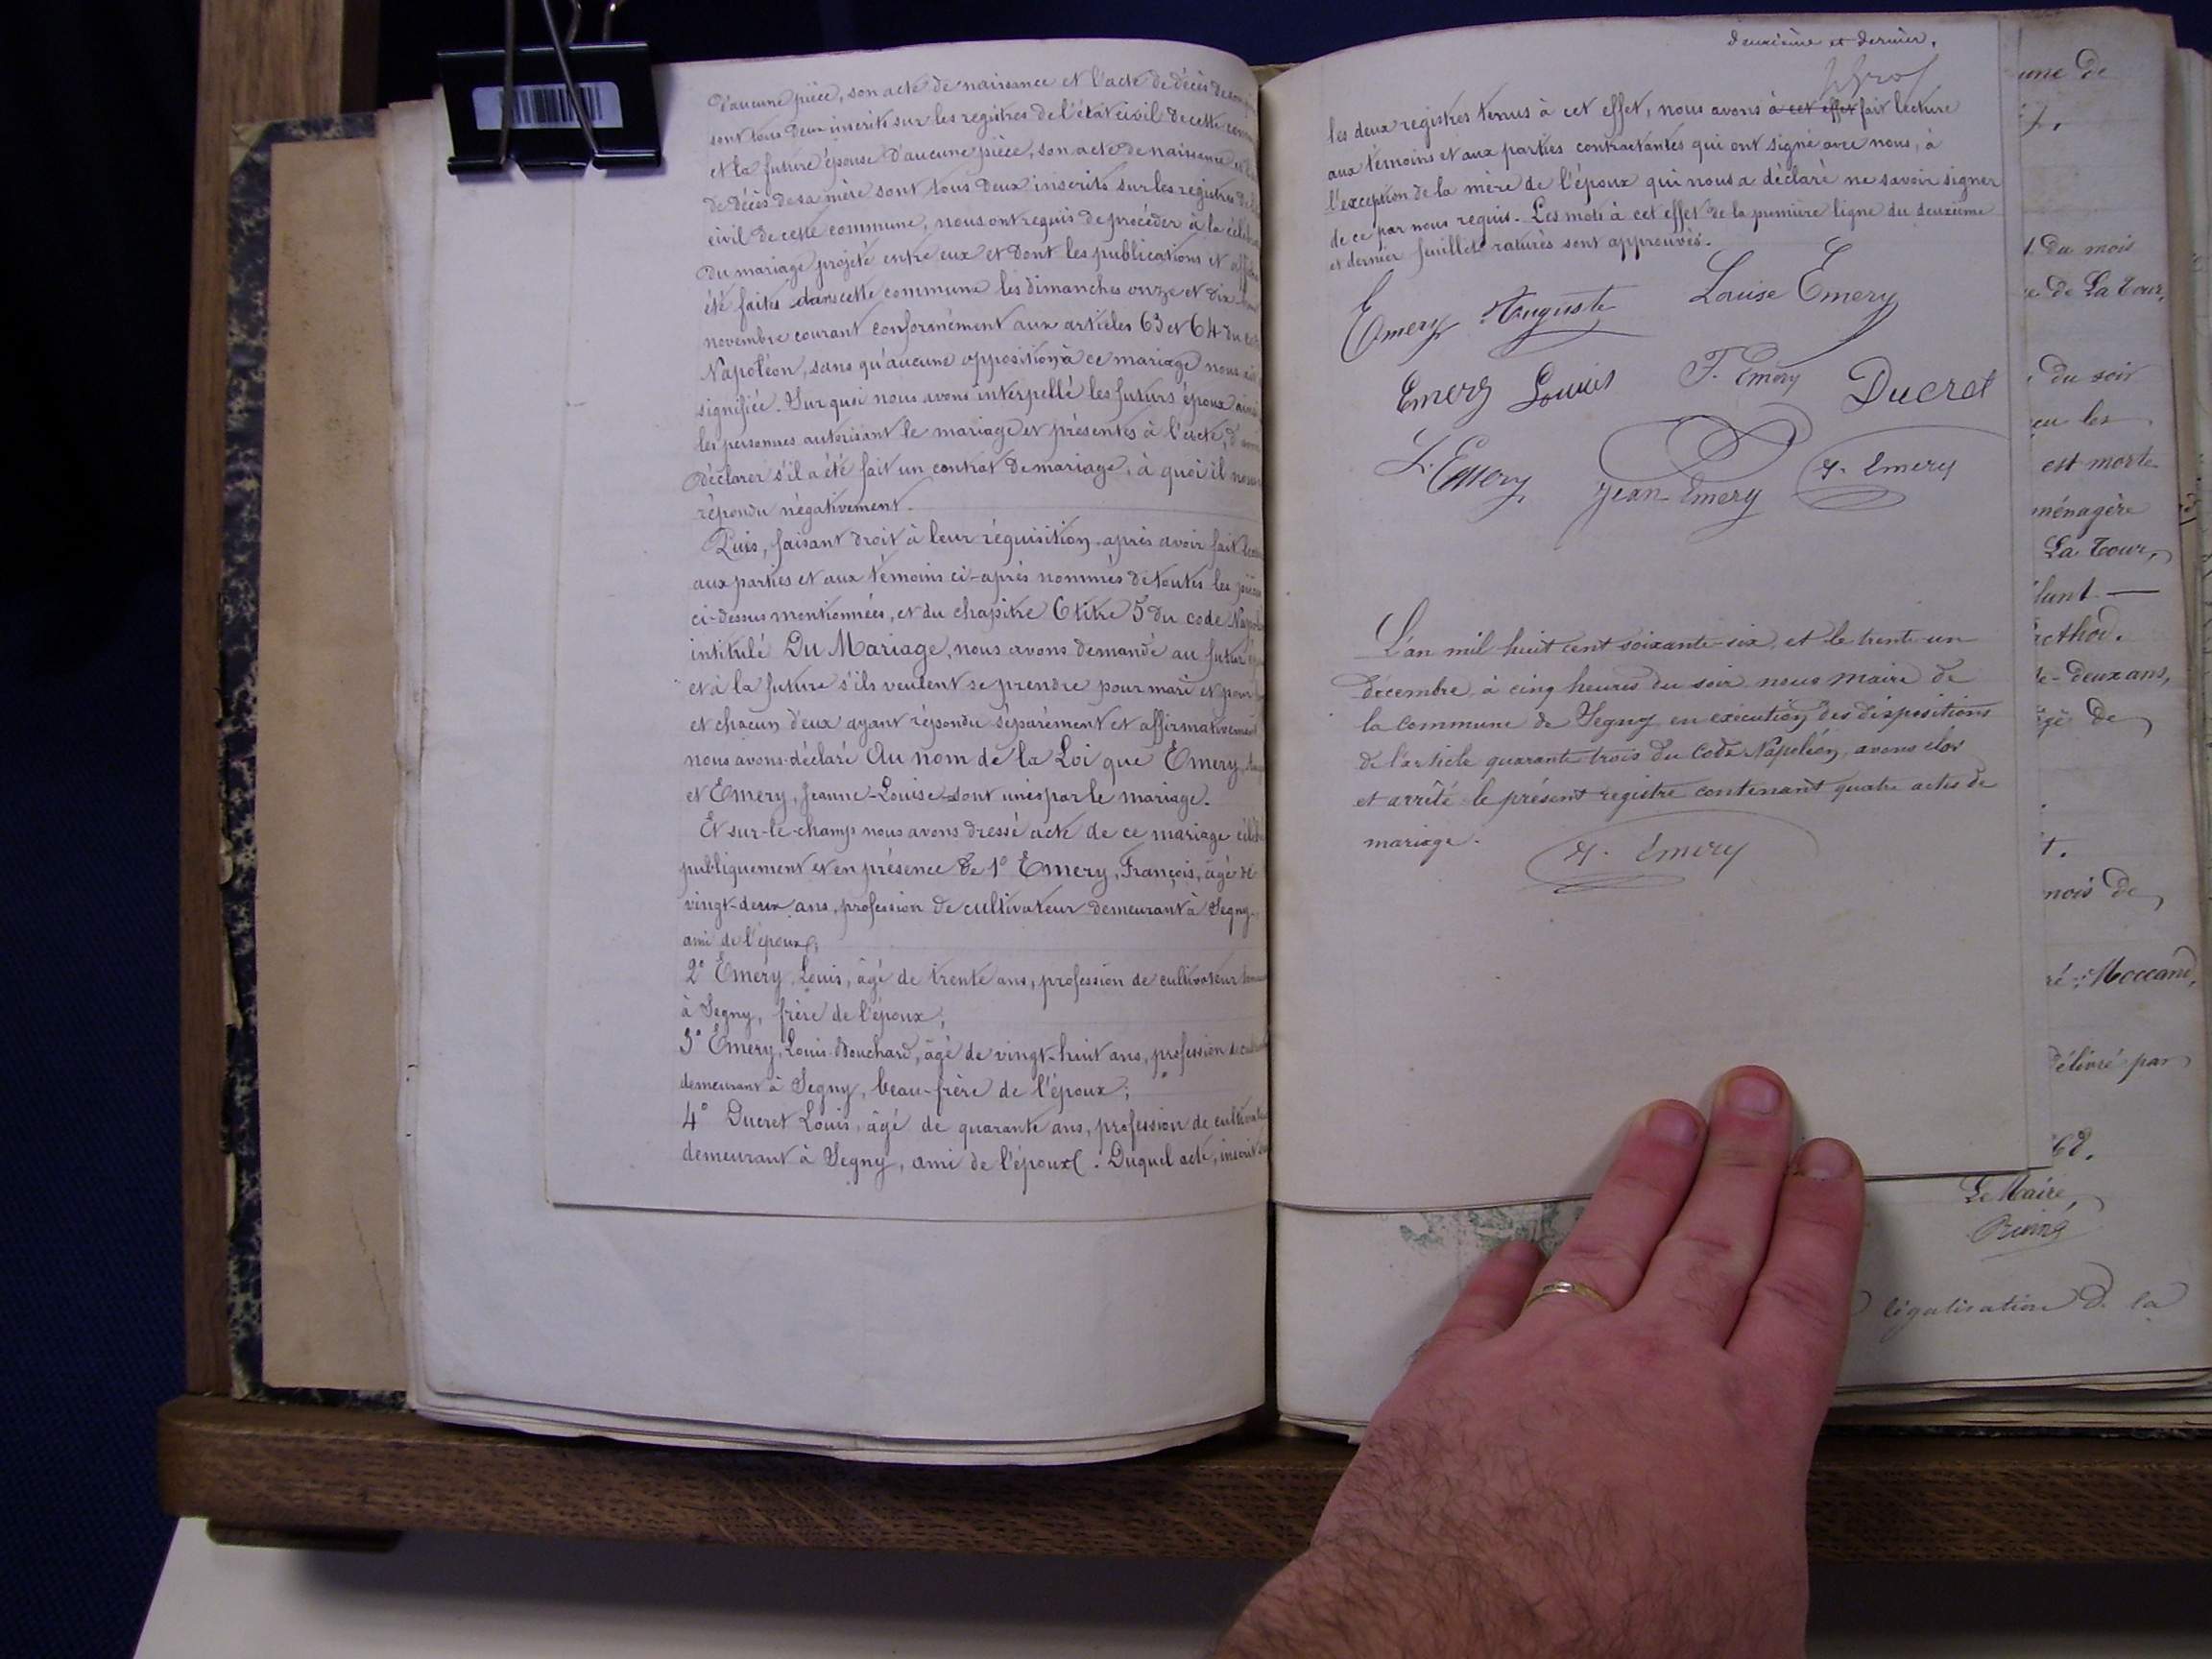 d'aucune pièce, son acte de naissance et l'acte de décès de son
sont tous deux inscrits sur les registres de l'état civil de cette
et la future épouse d'aucune pièce, son acte de naissance et
de décès de sa mère sont tous deux inscrits sur les registres de
civil de cette commune, nous ont requis de procéder à la
du mariage projeté entre eux et dont les publications et
été faites dans cette commune les dimanches onze et dix-
novembre courant conformément aux articles 63 et 64 du
Napoléon, sans qu'aucune opposition à ce mariage nous ait
signifiée. Sur quoi nous avons interpellé les futurs époux ainsi
les personnes autorisant le mariage et présentes à l'acte, d'
déclarer s'il a été fait un contrat de mariage, à quoi il nous
répondu négativement.
Puis, faisant droit à leur réquisition, après avoir fait
aux parties et aux témoins ci-après nommés de toutes les pièces
ci-dessus mentionnées, et du chapitre 6 titre 5 du code
intitulé Du Mariage, nous avons demandé au futur
et à la future s'ils veulent se prendre pour mari et pour
et chacun d'eux ayant répondu séparément et affirmativement
nous avons déclaré Au nom de la Loi que Emery,
et Emery, Jeanne-Louise sont unis par le mariage.
Et sur-le-champ nous avons dressé acte de ce mariage
publiquement et en présence de 1° Emery, François, âgé de
vingt-deux ans, profession de cultivateur demeurant à Segny,
ami de l'époux;
2° Emery, Louis, âgé de trente ans, profession de cultivateur
à Segny, frère de l'époux;
3° Emery, Louis Bouchard, âgé de vingt-huit ans, profession de
demeurant à Segny, beau-frère de l'époux;
4° Ducret Louis, âgé de quarante ans, profession de
demeurant à Segny, ami de l'époux. Duquel acte, inscrit
deuxième et dernier.
les deux registres tenus à cet effet, nous avons à cet effet fait lecture
aux témoins et aux parties contractantes qui ont signé avec nous, à
l'exception de la mère de l'époux qui nous a déclaré ne savoir signer
de ce par nous requis. Les mots à cet effet de la première ligne du deuxième
et dernier feuillet raturés sont approuvés.
Emery Auguste Louise Emery
Emery Louis F. Emery Ducret
L. Emery Jean Emery Emery
L'an mil huit cent soixante-six, et le trente-un
décembre, à cinq heures du soir, nous maire de
la commune de Segny en exécution des dispositions
de l'article quarante-trois du Code Napoléon, avons clos
et arrêté le présent registre contenant quatre actes de
mariage.
Emery
une de
du mois
de La Tour,
du soir
les
est morte
ménagère
La Tour,
-deux ans,
de
mois de
Moccand,
délivré par
62.
Le Maire,
légalisation de la